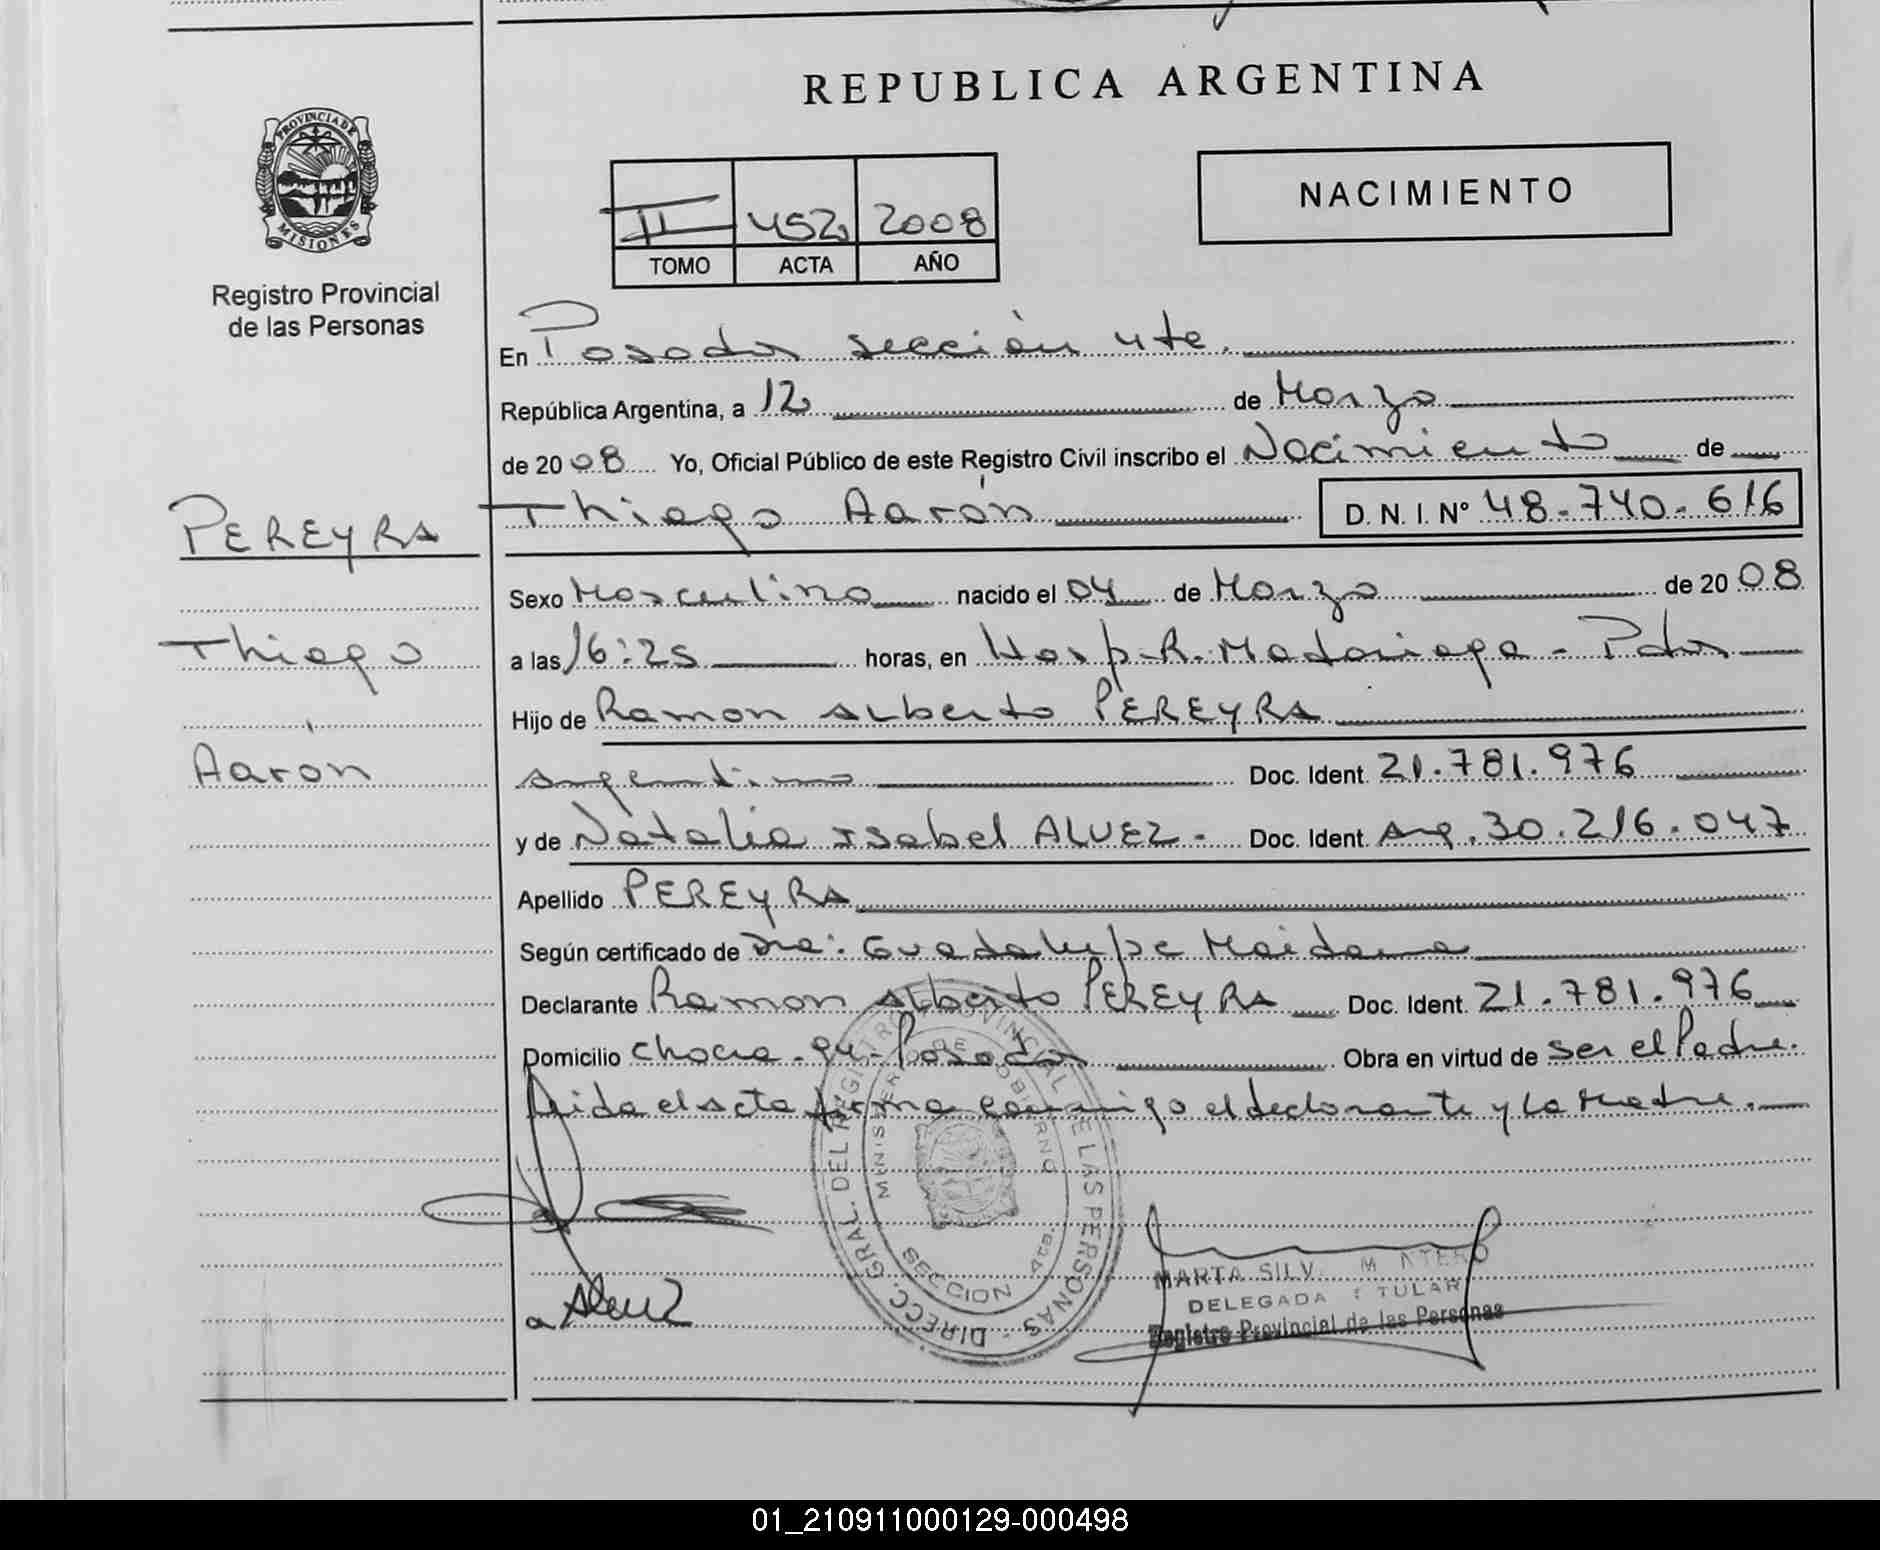 REPUBLICA ARGENTINA
PROVINCIA DE MISIONES
Registro Provincial
de las Personas
II 452 2008
TOMO ACTA AÑO
NACIMIENTO
En Posadas sección 4ta.
República Argentina, a 12 de Marzo
de 2008 Yo, Oficial Público de este Registro Civil inscribo el Nacimiento de
PEREYRA
Thiago Aarón D. N. I. Nº 48.740.616
Sexo Masculino nacido el 04 de Marzo de 2008
Thiago
a las 16:25 horas, en Hosp. R. Madariaga - Pdas
Hijo de Ramon Alberto PEREYRA
Aarón
argentino Doc. Ident. 21.781.976
y de Natalia Isabel ALVEZ - Doc. Ident. Arg. 30.216.047
Apellido PEREYRA
Según certificado de Dra. Guadalupe Maidana
Declarante Ramon Alberto PEREYRA Doc. Ident. 21.781.976
Domicilio Posadas Obra en virtud de ser el Padre.
Leida el acta firma conmigo el declarante y la Madre.
DIRECC. GRAL. DEL REGISTRO PROVINCIAL DE LAS PERSONAS
MINISTERIO DE GOBIERNO
SECCION 4ta.
MARTA SILV
DELEGADA TITULAR
Registro Provincial de las Personas
01_210911000129-000498